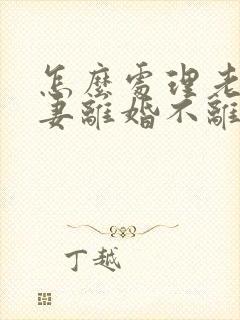 怎麼處理老
妻離婚不離
丁越